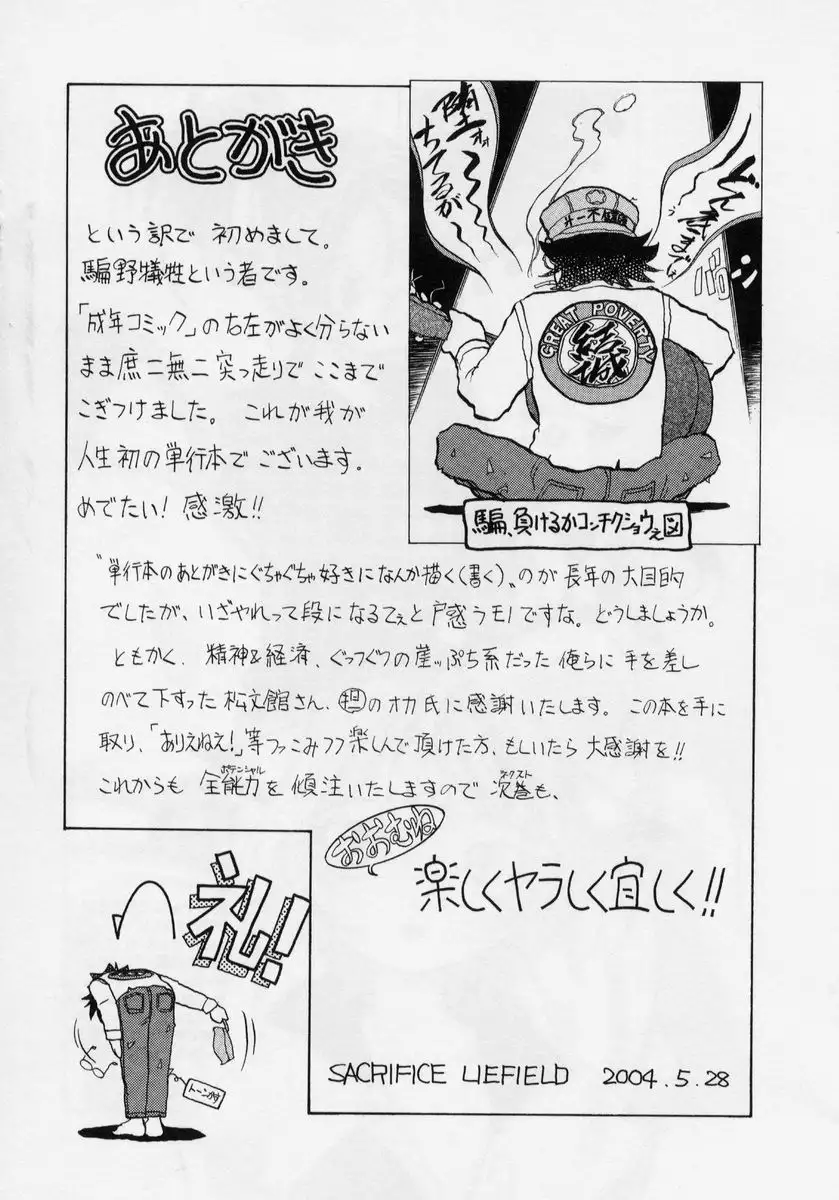 あとがき
という訳で 初めまして。
騙野犠牲という者です。
「成年コミック」の右左がよく分らない
まま遮二無二突っ走りで ここまで
こぎつけました。 これが我が
人生初の単行本でございます。
めでたい! 感激!!
堕オォ〜〜
ちてるが
どん底までも
GREAT POVERTY
騙、負けるかコンチクショウえ図
〝単行本のあとがきにぐちゃぐちゃ好きになんか描く(書く)〟のが長年の大目的
でしたが、いざやれって段になるてぇと戸惑うモノですな。どうしましょうか。
ともかく、精神&経済、ぐっつぐつの崖っぷち系だった俺らに手を差し
のべて下すった松文館さん、担のオカ氏に感謝いたします。この本を手に
取り、「ありえねえ!」等ツっこみつつ楽しんで頂けた方、もしいたら大感謝を!!
ポテンシャル ネクスト
これからも 全能力を傾注いたしますので 次巻も、
おおむね
楽しくヤラしく宜しく!!
礼!!
トーンカス
SACRIFICE LIEFIELD 2004.5.28